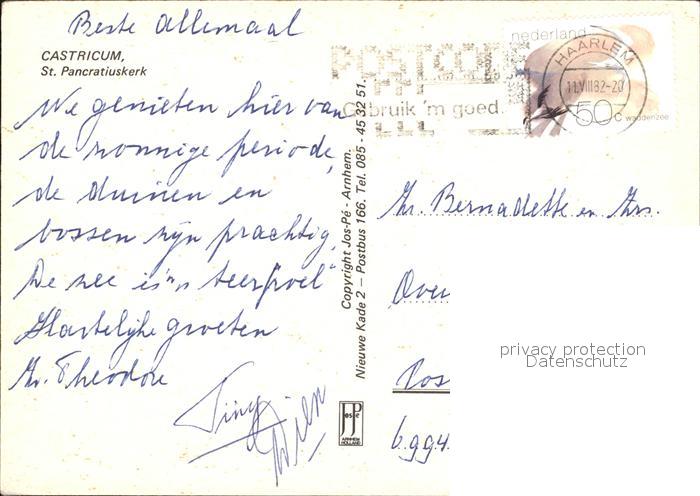 Beste allemaal
CASTRICUM,
St. Pancratiuskerk
We genieten hier van
de zonnige periode,
de duinen en
bossen zijn prachtig,
De zee is 'n "teerpoel"
Hartelijke groeten
Zr. Theodore
Tiny
Wien
Copyright Jos-Pé - Arnhem.
Nieuwe Kade 2 – Postbus 166. Tel. 085 - 45 32 51.
JosPé
ARNHEM
HOLLAND
Gebruik 'm goed.
nederland
HAARLEM
11.VIII.82-20
50c waddenzee
Zr. Bernadette en Zrs.
Over
Pos
6994
privacy protection
Datenschutz